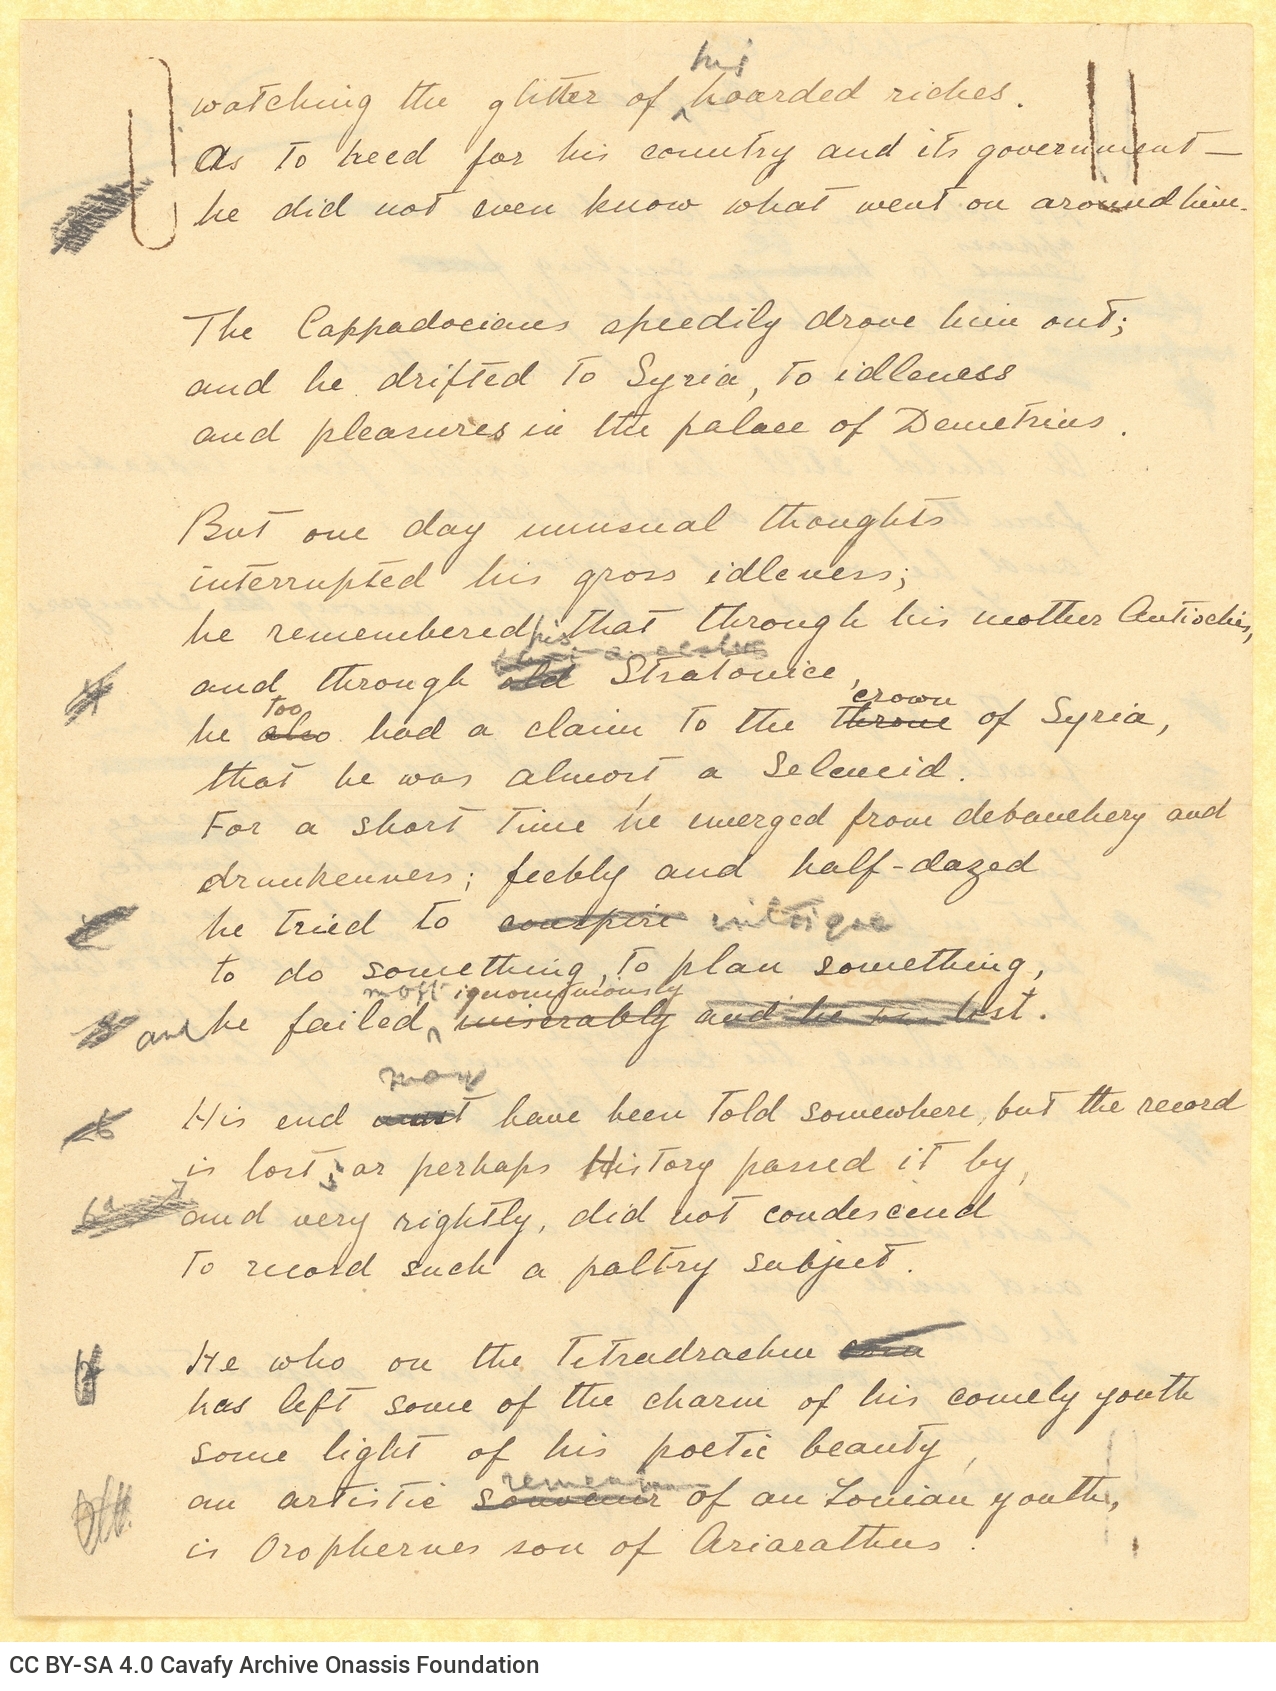 watching the glitter of his hoarded riches.
As to heed for his country and its government —
he did not even know what went on around him.
The Cappadocians speedily drove him out;
and he drifted to Syria, to idleness
and pleasures in the palace of Demetrius.
But one day unusual thoughts
interrupted his gross idleness;
he remembered that through his mother Antiochis,
his ancestress
and through old Stratonice,
too crown
he also had a claim to the throne of Syria,
that he was almost a Seleucid.
For a short time he emerged from debauchery and
drunkenness; feebly and half-dazed
he tried to conspire intrigue
to do something, to plan something,
most ignominiously
and he failed miserably and he is lost.
may
His end must have been told somewhere, but the record
is lost; or perhaps History passed it by,
and very rightly, did not condescend
to record such a paltry subject.
He who on the Tetradrachm
has left some of the charm of his comely youth
some light of his poetic beauty,
an artistic souvenir of an Ionian youth,
is Orophernes son of Ariarathus.
CC BY-SA 4.0 Cavafy Archive Onassis Foundation